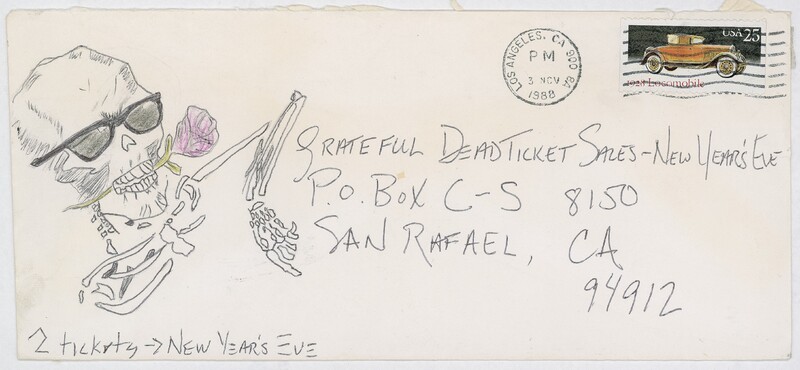 LOS ANGELES, CA 900
PM
3 NOV
1988
USA 25
Locomobile
GRATEFUL DEAD TICKET SALES - NEW YEAR'S EVE
P.O. BOX C-S 8150
SAN RAFAEL, CA
94912
2 tickets → NEW YEAR'S EVE